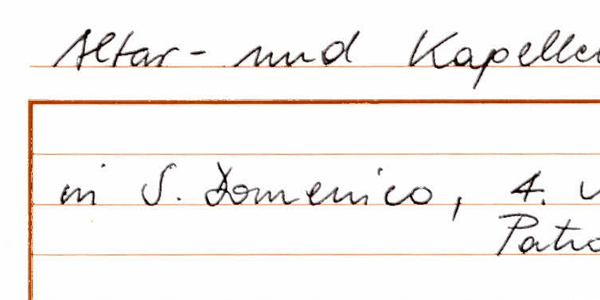 Altar- und Kapellen
in S. Domenico, 4. v
Patro